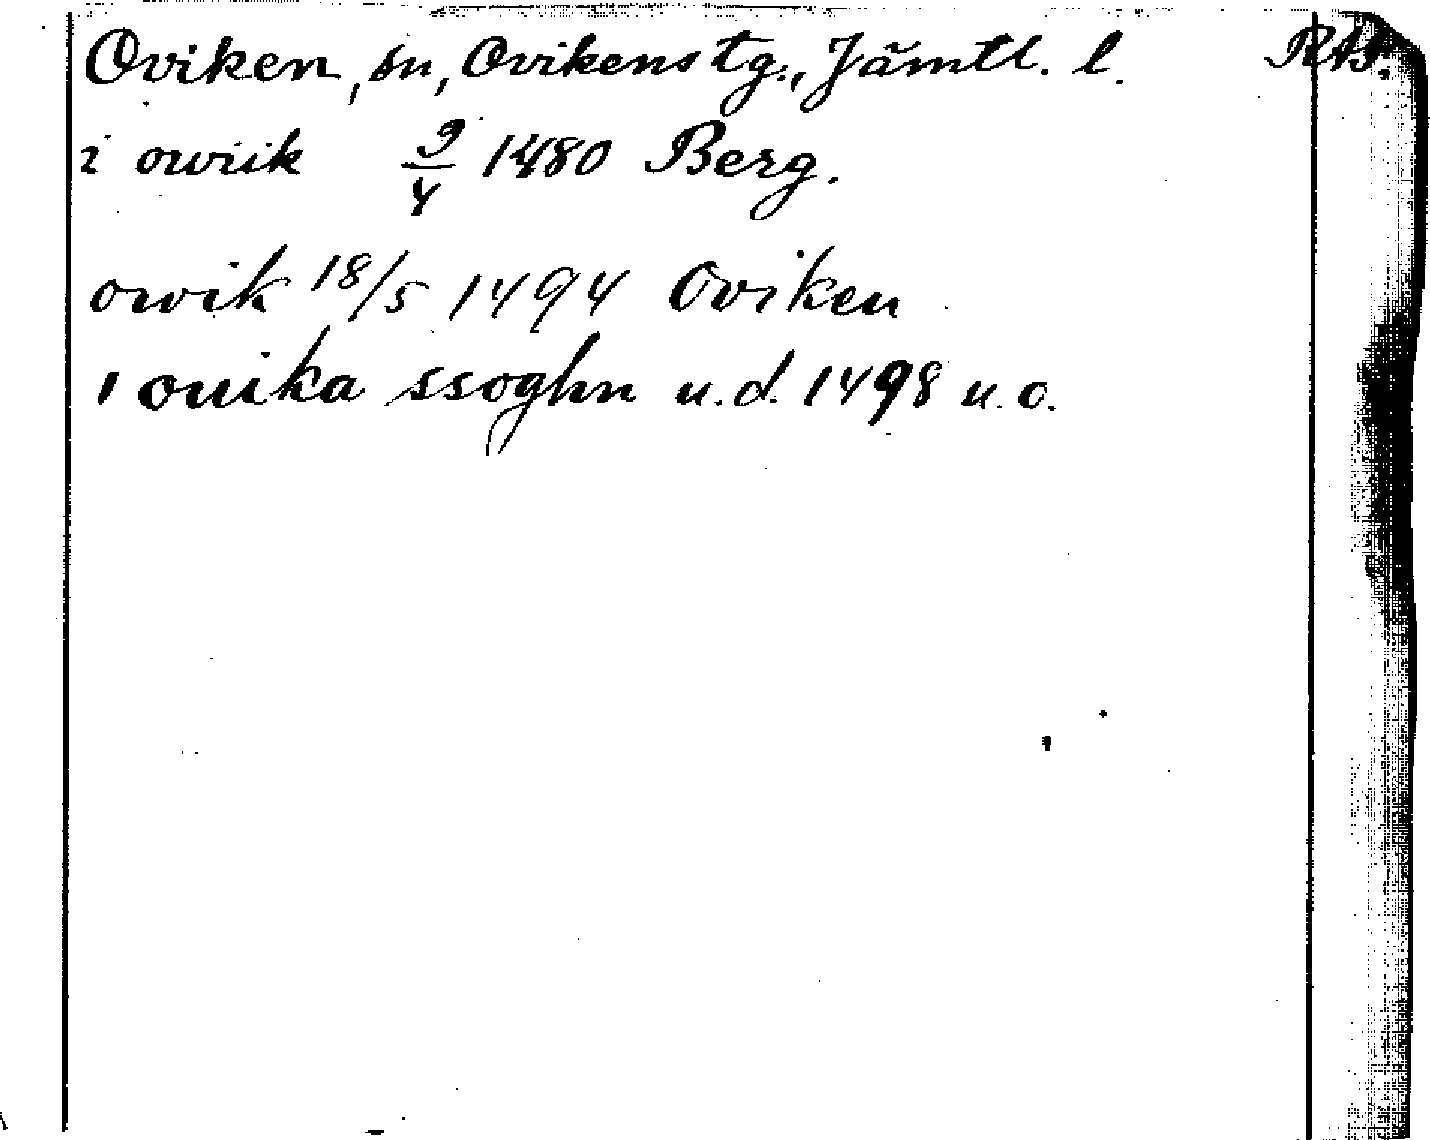 Oviken, sn, Ovikens tg., Jämtl. l. RAp.
i owiik 9/4 1480 Berg.
owik 18/5 1494 Oviken
i ouika ssoghn u.d. 1498 u.o.